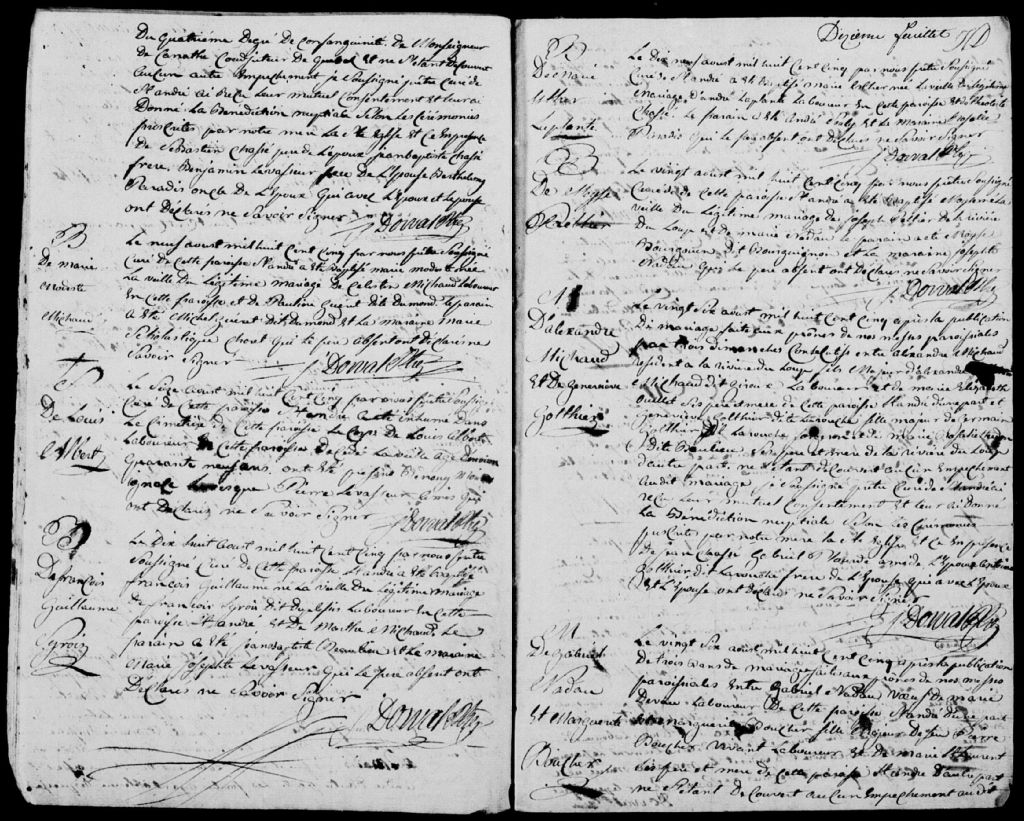 Du quatrième Degré De Consanguinité de Monseigneur
De Canathe Coadjuteur de Quebec Et ne S'étant Decouvert
aucun autre Empechement je Soussigné prêtre Curé de
St André ai Reçu Leur mutuel Consentement Et leur ai
Donné La Bénédiction nuptiale Selon les Cérémonies
prescrites par notre mère La Ste Eglise Et En presence
De Sébastien Chassé père de L'epoux jean Baptiste Chassé
frere, Benjamin Levasseur frere De L'Epouse Barthelemy
Paradis oncle De L'Epoux Qui avec L'Epoux et L'epouse
ont Declaré ne Savoir Signer
Dorval Ptre
B
De marie
modeste
Michaud
Le neuf aoust mil huit Cent Cinq par nous prêtre Soussigné
Curé de Cette paroisse St André a Eté Baptisée marie modeste née
La veille Du Légitime mariage de Celestin Michaud Laboureur
En Cette paroisse et de Pauline Guéret dit dumond. Le parain
a Eté Michel Guéret dit Dumond Et La maraine Marie
Scholastique Choret qui Le père absent ont declaré ne
Savoir Signer
Dorval Ptre
S
De Louis
Albert
Le Seize aoust mil huit Cent Cinq par nous prêtre Soussigné
Curé de Cette paroisse St André a Eté Inhumé Dans
Le Cemetiere De Cette paroisse Le Corps De Louis Albert
Laboureur De Cette paroisse Décédé La veille agé D'environ
Quarante neuf ans. ont Eté présents
ignace Levesque Pierre Levasseur
ont Declaré ne Savoir Signer
Dorval Ptre
B
De françois
Guillaume
Syrois
Le Dix huit aoust mil huit Cent Cinq par nous prêtre
Soussigné Curé de Cette paroisse St André a Eté Baptisé
françois Guillaume né La veille Du Légitime Mariage
De françois Syrois dit duplessis Laboureur En Cette
paroisse St André Et De Marthe Michaud. Le
parain a Eté jean Baptiste Beaulieu Et La maraine
Marie Josephte Levasseur Qui Le Pere absent ont
Déclaré ne Savoir Signer
Dorval Ptre
Dixième feuillet
B
De marie
Esther
Laplante
Le dix neuf aoust mil huit Cent Cinq par nous prêtre Soussigné
Curé de St André a Eté Baptisée marie Esther née La veille du Légitime
Mariage D'andré Laplante Laboureur En Cette paroisse et de Théotiste
Chassé. Le parain a Eté André Et La Maraine Rosalie
qui Le père absent ont Declaré ne Savoir Signer
Dorval Ptre
B
De Moyse
Pelletier
Le vingt aoust mil huit Cent Cinq par nous prêtre Soussigné
Curé de Cette paroisse St André a Eté Baptisé Moyse né La
veille Du Légitime mariage de joseph Pelletier de la rivière
Du Loup et de marie Nadeau Le parain a eté Moyse
Bourguoin dit Bourguignon Et La maraine josephte
Nadeau Le père absent ont Déclaré ne Savoir Signer
Dorval Ptre
M
D'alexandre
Michaud
Et De Genevieve
Gotthier
Le vingt Six aoust mil huit Cent Cinq après la publication
De mariage faite aux prônes de nos messes paroissiales
par trois dimanches Consécutifs entre alexandre Michaud
résident a la rivière du Loup fils Majeur d'alexandre
Michaud dit Laboureur et de marie Elizabeth
Ouellet Ses pere et mere de Cette paroisse St André d'une part et
Genevieve Gotthier dite Larouche fille majeure de Germain
Gotthier dit Larouche et de Marie Rosalie
dit Beaulieu Ses père et mère de la rivière du Loup
d'autre part. ne S'étant découvert aucun Empechement
audit mariage je Soussigné prêtre Curé de St André ai
reçu Leur mutuel Consentement et leur ai Donné
La Bénédiction nuptiale Selon Les Cérémonies
prescrites par notre mère La Ste Eglise et En presence
de jean Chassé Gabriel Nadeau ami de L'Epoux
Gotthier dit Larouche frere de L'Epouse Qui avec L'Epoux
Et L'Epouse ont declaré ne Savoir Signer
Dorval Ptre
M
De Gabriel
Nadeau
Et Marguerite
Boucher
Le vingt Six aoust mil huit Cent Cinq après la publication
De trois bans de mariage faite aux prônes de nos messes
paroissiales Entre Gabriel Nadeau veuf de marie
Devoue Laboureur De Cette paroisse St André d'une part
Et marguerite Boucher fille Majeure de feu Pierre
Boucher vivant Laboureur Et De marie St Laurent
Ses père et mère de Cette paroisse St André D'autre part
ne S'étant Découvert aucun Empechement audit